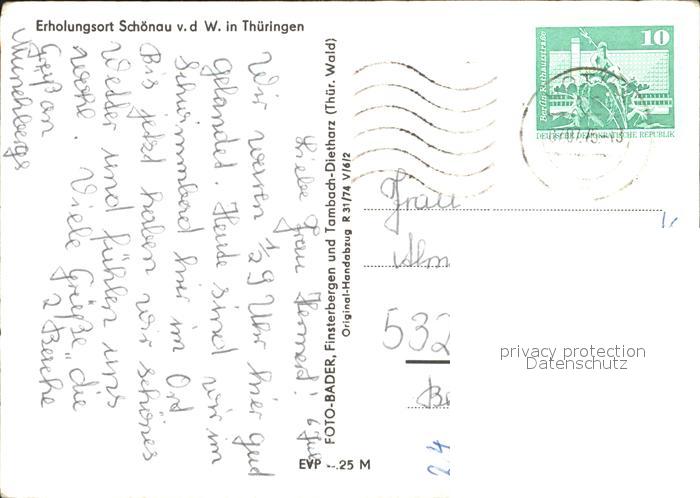 Erholungsort Schönau v. d W. in Thüringen
Liebe Frau
Wir waren ½ 9 Uhr hier gut
gelandet. Heute sind wir im
Schwimmbad hier im Ort
Bis jetzt haben wir schönes
Wetter und fühlen uns
wohl. Viele Grüße die
2
Gruß an
Münchbergs
FOTO-BADER, Finsterbergen und Tambach-Dietharz (Thür. Wald)
Original-Handabzug R 31/74 V/6/2
EVP -.25 M
10
Berlin-Rathausstraße
DEUTSCHE DEMOKRATISCHE REPUBLIK
Frau
532
24
privacy protection
Datenschutz